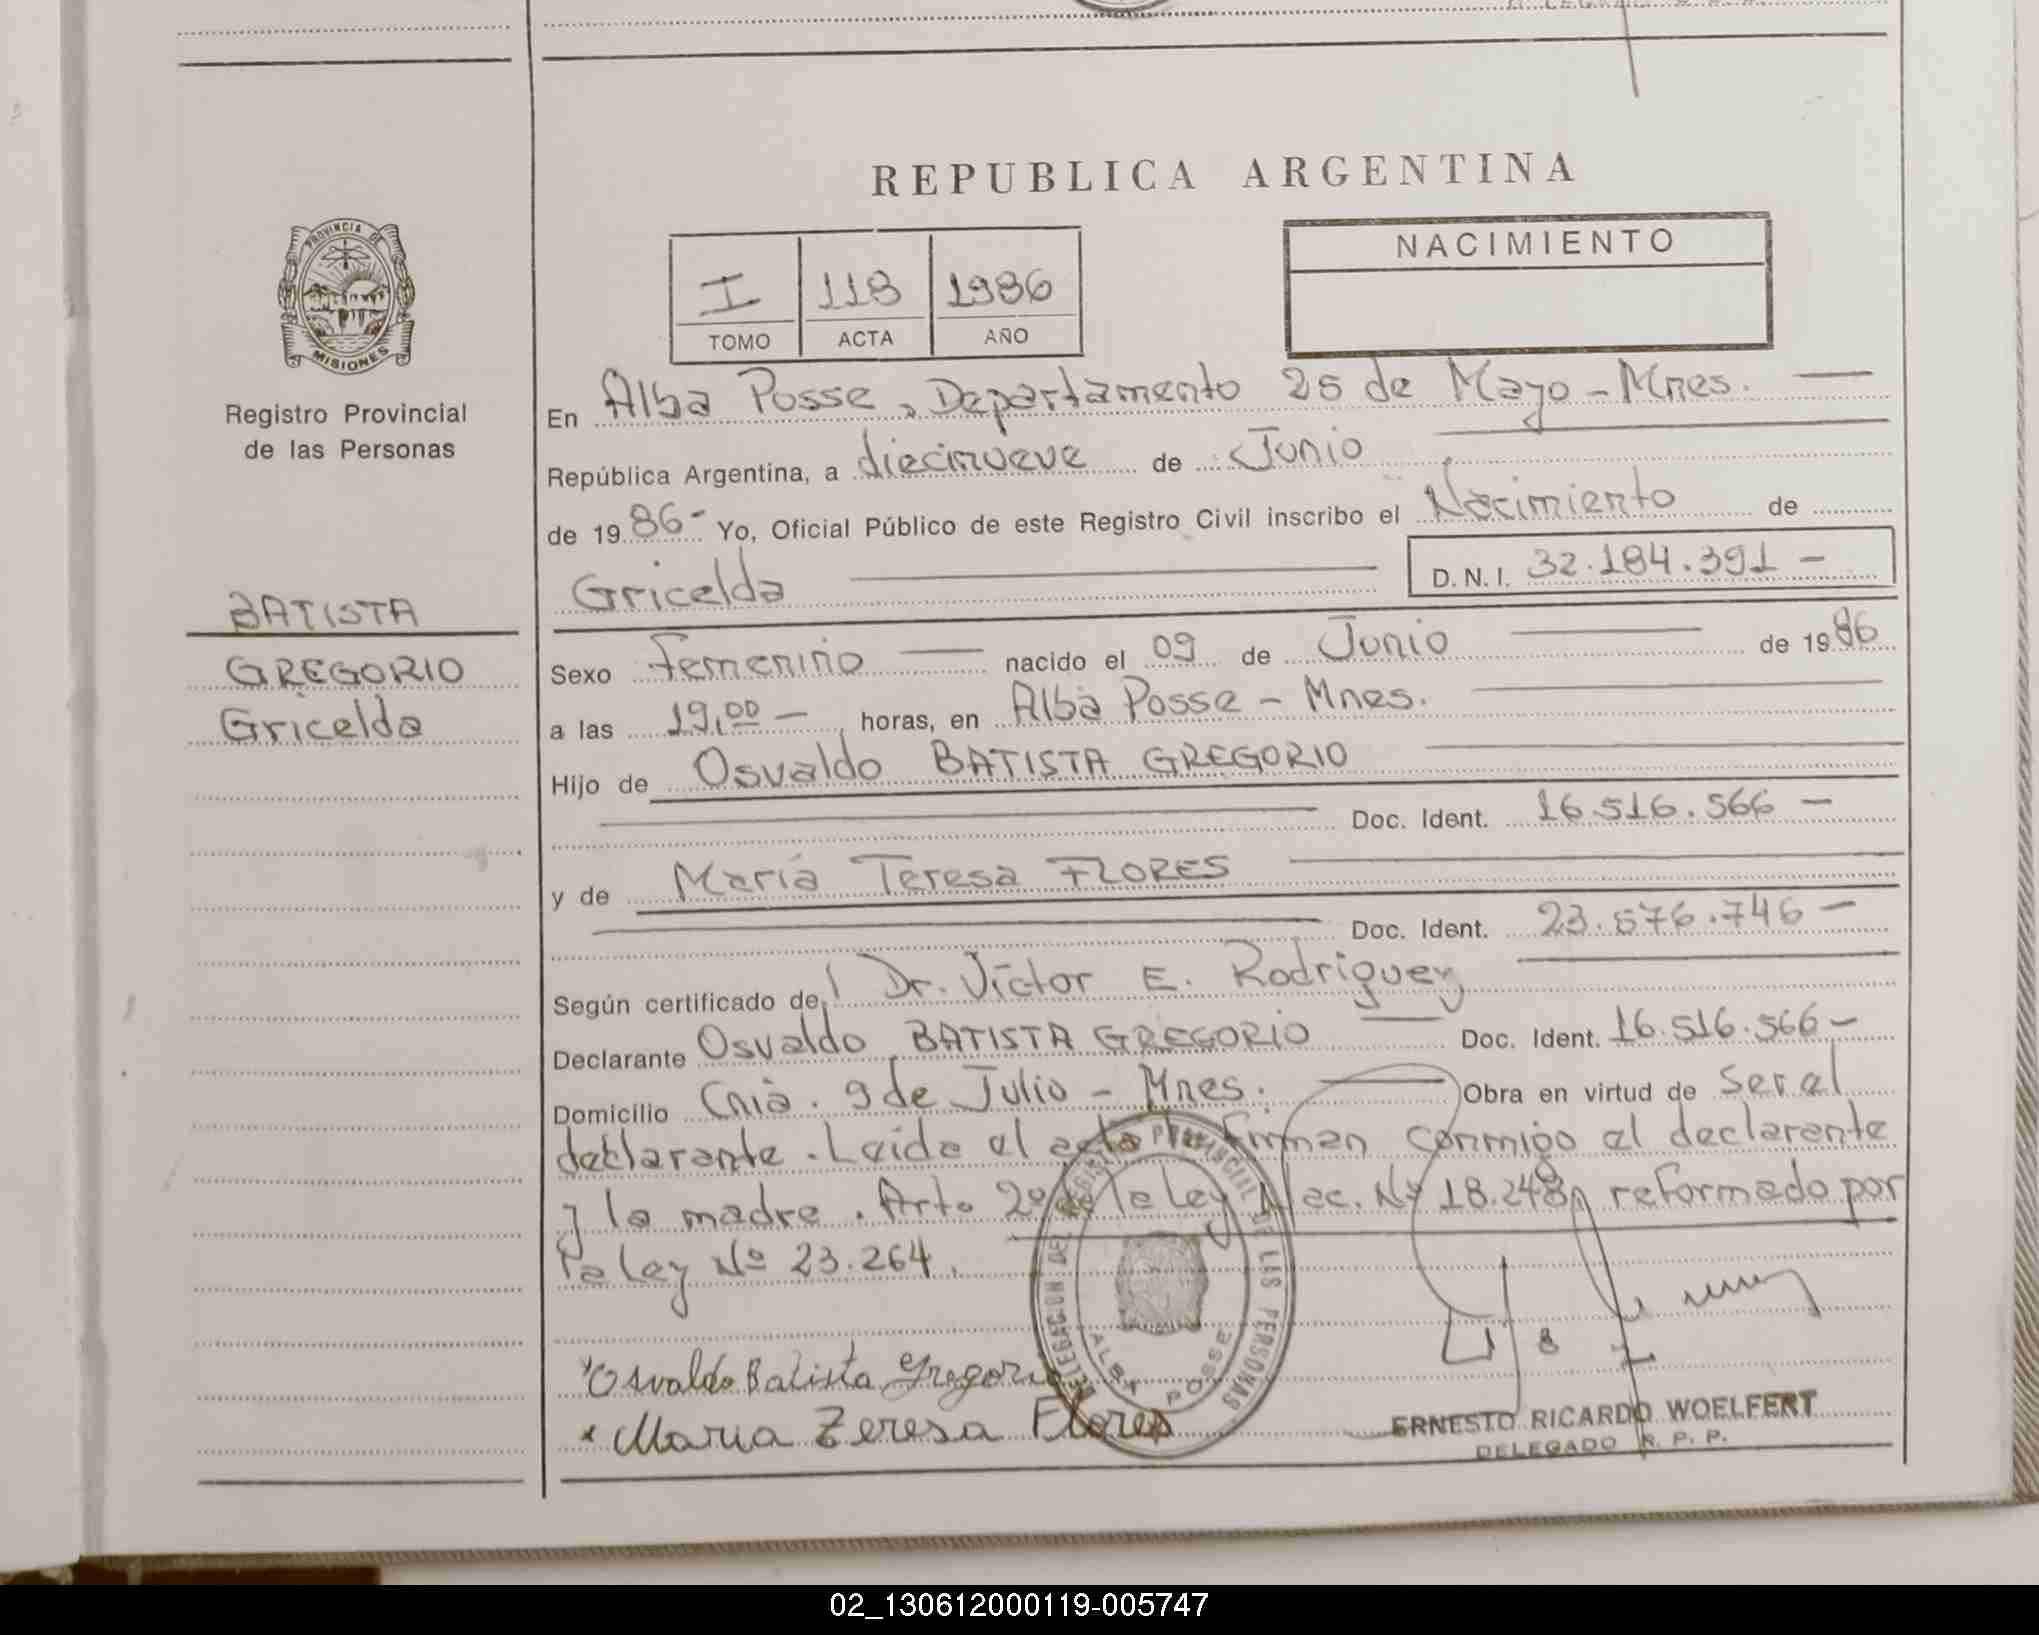 REPUBLICA ARGENTINA
PROVINCIA DE
MISIONES
Registro Provincial
de las Personas
I 118 1986
TOMO ACTA AÑO
NACIMIENTO
En Alba Posse, Departamento 25 de Mayo - Mnes.
República Argentina, a diecinueve de Junio
de 1986- Yo, Oficial Público de este Registro Civil inscribo el Nacimiento de
Gricelda D.N.I. 32.184.391 -
BATISTA
GREGORIO
Gricelda
Sexo Femenino nacido el 09 de Junio de 1986
a las 19,00 - horas, en Alba Posse - Mnes.
Hijo de Osvaldo BATISTA GREGORIO
Doc. Ident. 16.516.566 -
y de María Teresa FLORES
Doc. Ident. 23.576.746 -
Según certificado de Dr. Víctor E. Rodriguez
Declarante Osvaldo BATISTA GREGORIO Doc. Ident. 16.516.566 -
Domicilio Cnia. 9 de Julio - Mnes. Obra en virtud de Ser al
declarante. Leída el acta Firman conmigo el declarante
y la madre. Art. 2º de la Ley Nac. Nº 18.248, reformado por
la Ley Nº 23.264.
Osvaldo Batista Gregorio
Maria Teresa Flores
DELEGACION DEL REGISTRO PROVINCIAL DE LAS PERSONAS
ALBA POSSE
ERNESTO RICARDO WOELFERT
DELEGADO R. P. P.
02_130612000119-005747